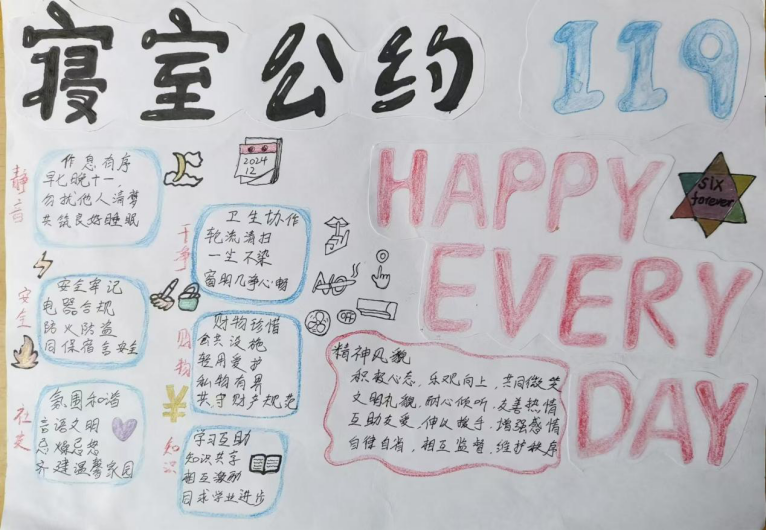 寝室公约
119
HAPPY
EVERY
DAY
six
forever
2024
12
静音
作息有序
早七晚十一,
勿扰他人清梦
共筑良好睡眠
干净
卫生协作
轮流清扫
一尘不染
窗明几净心畅
安全
安全牢记
电器合规
防火防盗
同保宿舍安全
财物
财物珍惜
公共设施
轻用爱护
私物有界
共守财产规范
社交
氛围和谐
言语文明
忌燥忌怒
齐建温馨家园
知识
学习互助
知识共享
相互激励
同求学业进步
精神风貌
积极心态, 乐观向上, 共同微笑
文明礼貌, 耐心倾听, 友善热情
互助友爱, 伸以援手, 增强感情
自律自省, 相互监督, 维护秩序